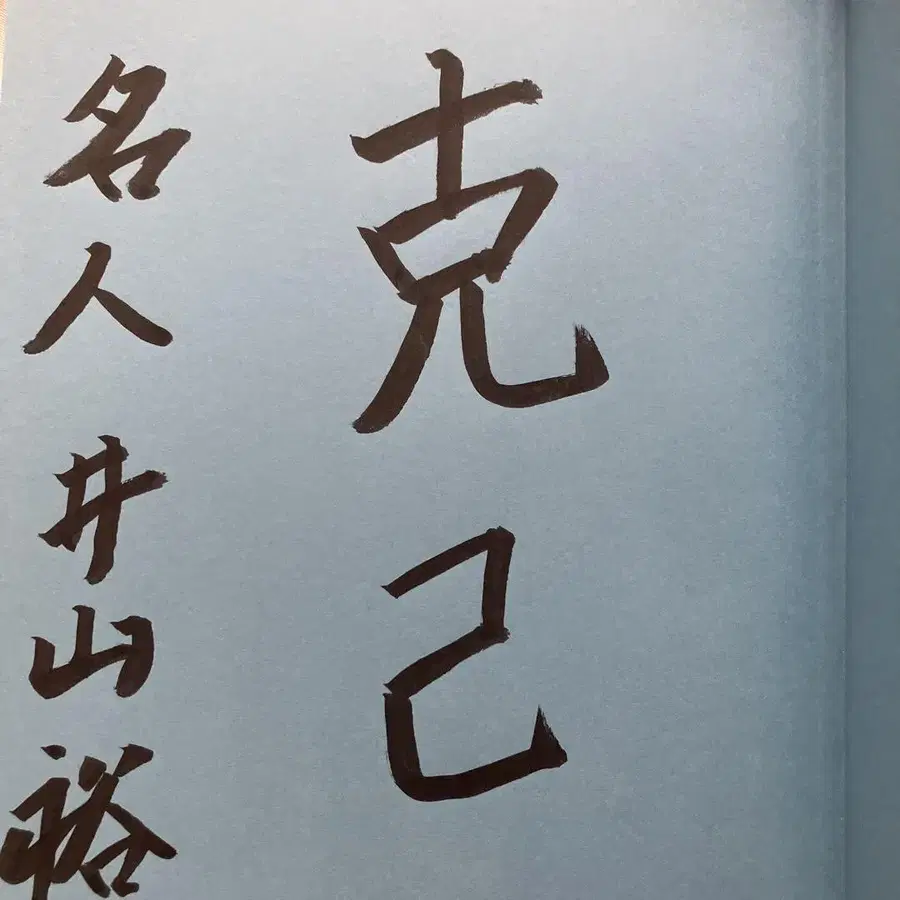 克己
名人 井山裕